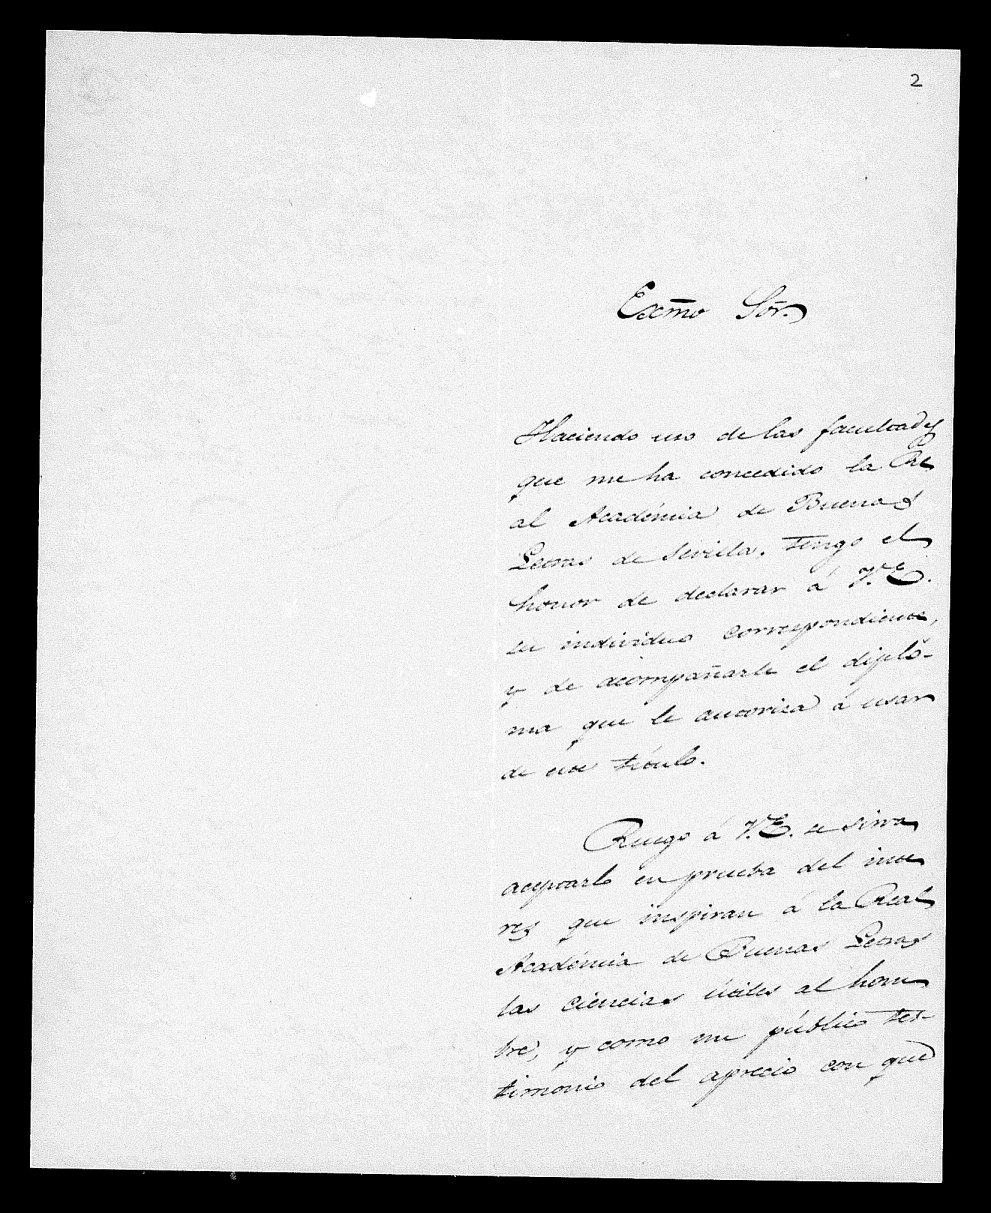 2
Exmo Sõr.
Haciendo uso de las facultades
que me ha concedido la Re
al Académia de Buenas
Letras de Sevilla, tengo el
honor de declarar á V.E.
su individuo correspondiente,
y de acompañarle el diplo-
ma que le autoriza á usar
de este título.
Ruego á V.E. se sirva
aceptarlo en prueba del inte
res que inspiran á la Real
Académia de Buenas Letras
las ciencias útiles al hom
bre, y como un público tes-
timonio del aprecio con que